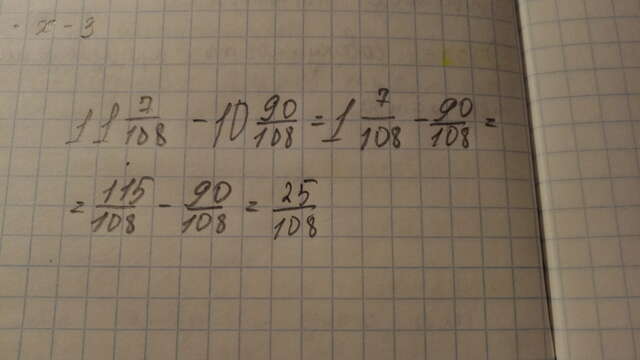 · x - 3
11 7/108 - 10 90/108 = 1 7/108 - 90/108 =
= 115/108 - 90/108 = 25/108